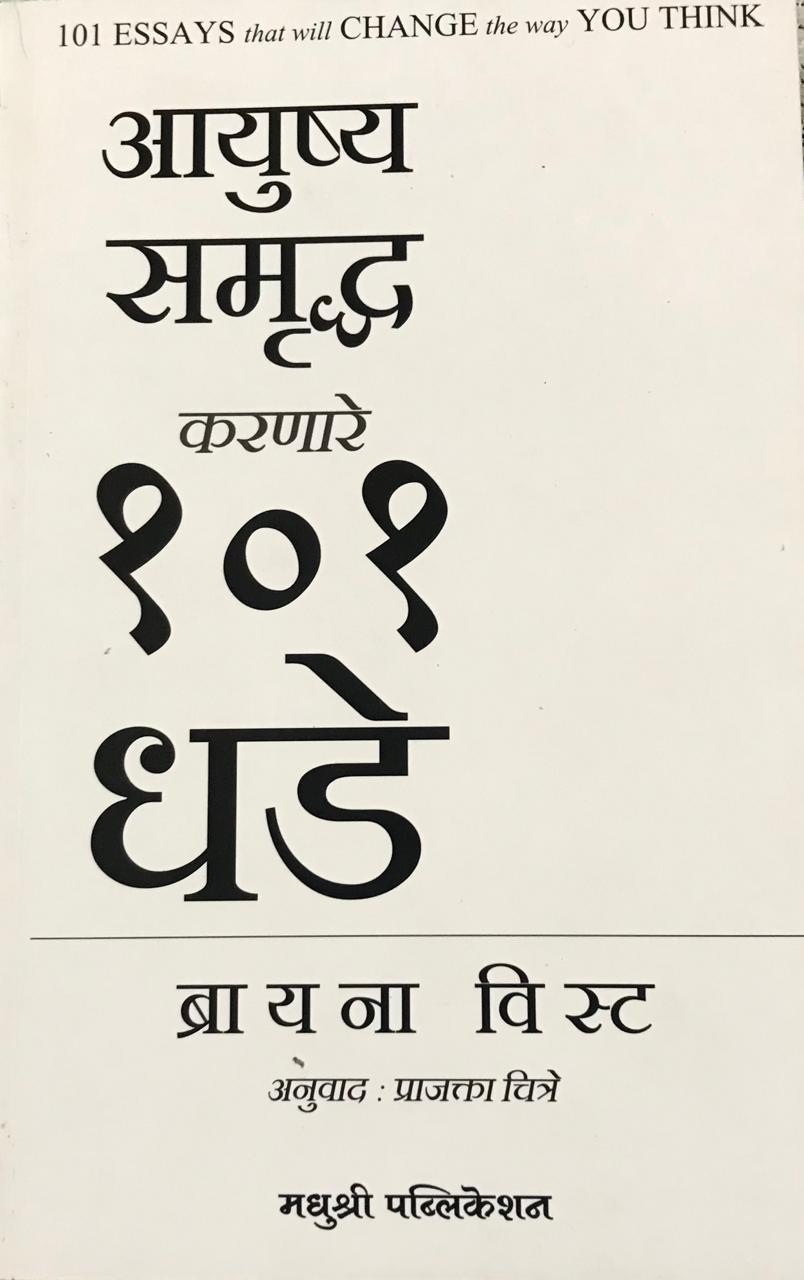 101 ESSAYS that will CHANGE the way YOU THINK
आयुष्य
समृद्ध
करणारे
१०१
धडे
ब्रायना विस्ट
अनुवाद : प्राजक्ता चित्रे
मधुश्री पब्लिकेशन